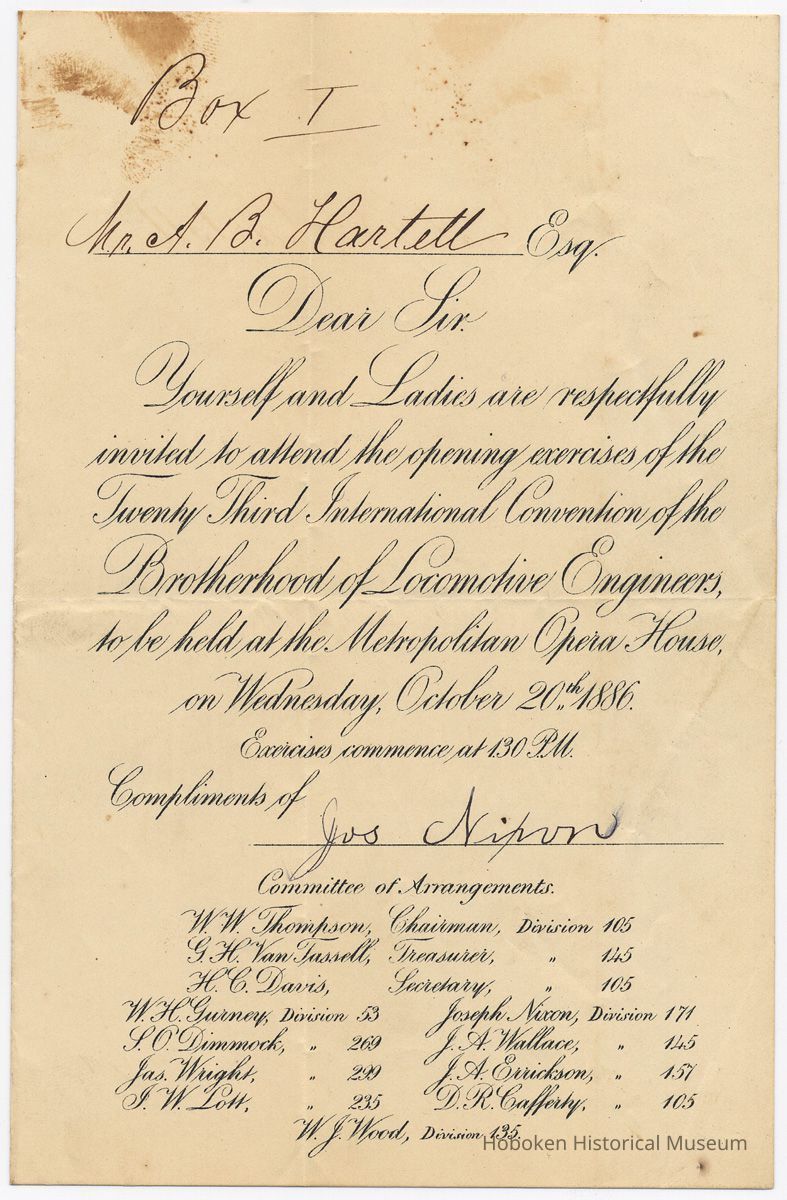 Box I
Mr. A. B. Hartell Esq.
Dear Sir.
Yourself and Ladies are respectfully
invited to attend the opening exercises of the
Twenty Third International Convention of the
Brotherhood of Locomotive Engineers,
to be held at the Metropolitan Opera House,
on Wednesday, October 20,th 1886.
Exercises commence at 1.30 P.M.
Compliments of
Jos Nixon
Committee of Arrangements.
W. W. Thompson, Chairman, Division 105
G. H. Van Tassell, Treasurer, „ 145
H. C. Davis, Secretary, „ 105
W. H. Gurney, Division 53 Joseph Nixon, Division 171
S. O. Dimmock, „ 269 J. A. Wallace, „ 145
Jas. Wright, „ 299 J. A. Errickson, „ 157
I. W. Lott, „ 235 D. R. Cafferty, „ 105
W. J. Wood, Division 135
Hoboken Historical Museum